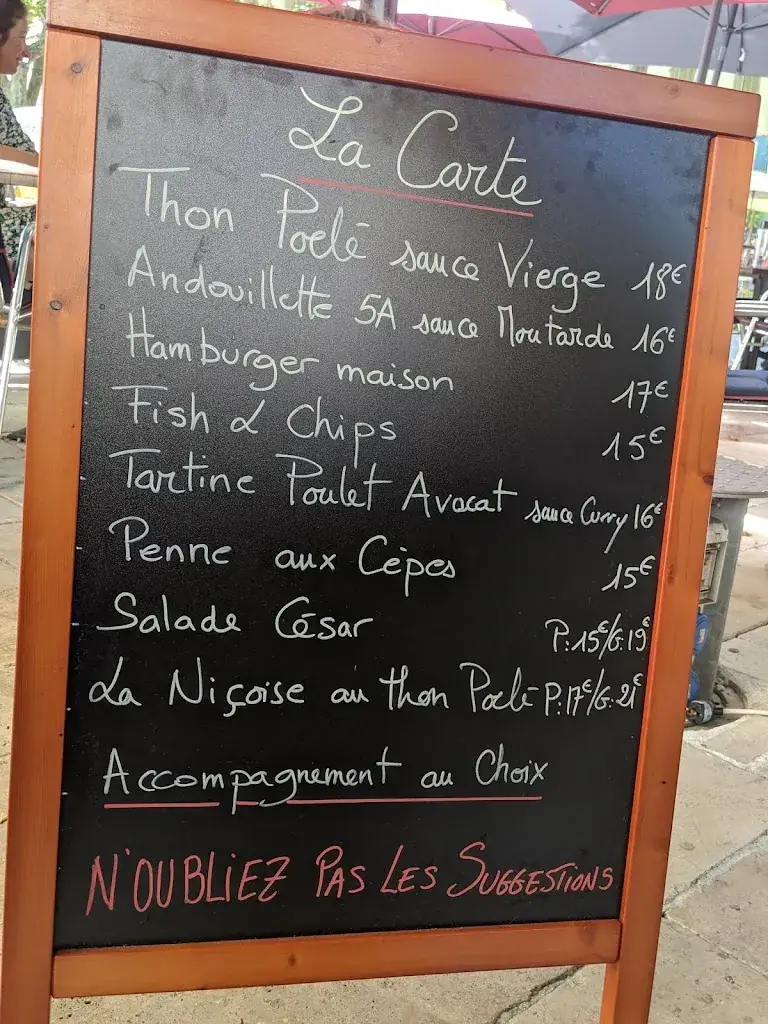 La Carte
Thon Poelé sauce Vierge 18€
Andouillette 5A sauce Moutarde 16€
Hamburger maison 17€
Fish & Chips 15€
- Tartine Poulet Avocat sauce Curry 16€
- Penne aux Cèpes 15€
- Salade César P:15€/G:19€
- La Niçoise au thon Poelé P:17€/G:21€
Accompagnement au Choix
N'OUBLIEZ PAS LES SUGGESTIONS